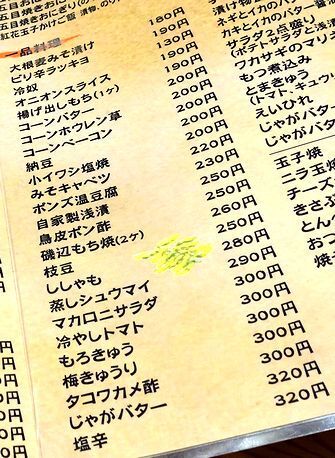 五目焼きおにぎり(の
紅花玉子かけご飯(漬物、のり
一品料理
大根麦みそ漬け
ピリ辛ラッキョ
冷奴
オニオンスライス
揚げ出しもち(1ヶ)
コーンバター
コーンホウレン草
コーンベーコン
納豆
小イワシ塩焼
みそキャベツ
ポンズ温豆腐
自家製浅漬
鳥皮ポン酢
磯辺もち焼(2ケ)
枝豆
ししゃも
蒸しシュウマイ
マカロニサラダ
冷やしトマト
もろきゅう
梅きゅうり
タコワカメ酢
じゃがバター
塩辛
180円
190円
190円
200円
200円
200円
200円
220円
230円
250円
250円
260円
250円
280円
290円
300円
300円
300円
300円
300円
320円
320円
ネギとイカのバター
カキとイカのバター醤
サラダ2点盛り
(ポテトサラダと浅
ワカサギのマリ
もつ煮込み
とまきゅう
(トマト、キュウ
えいひれ
じゃがバター
じゃがバター
玉子焼
ニラ玉
チーズ
きさぶ
とん
おつ
焼